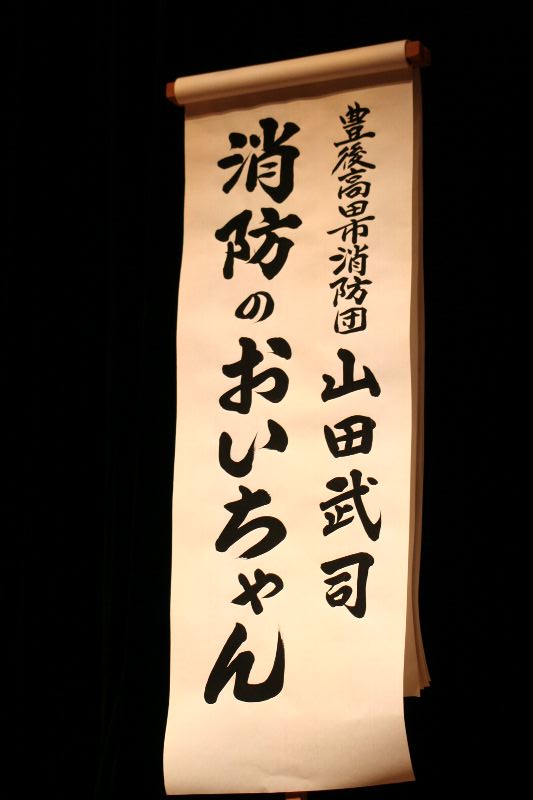 豊後高田市消防団 山田武司
消防のおいちゃん